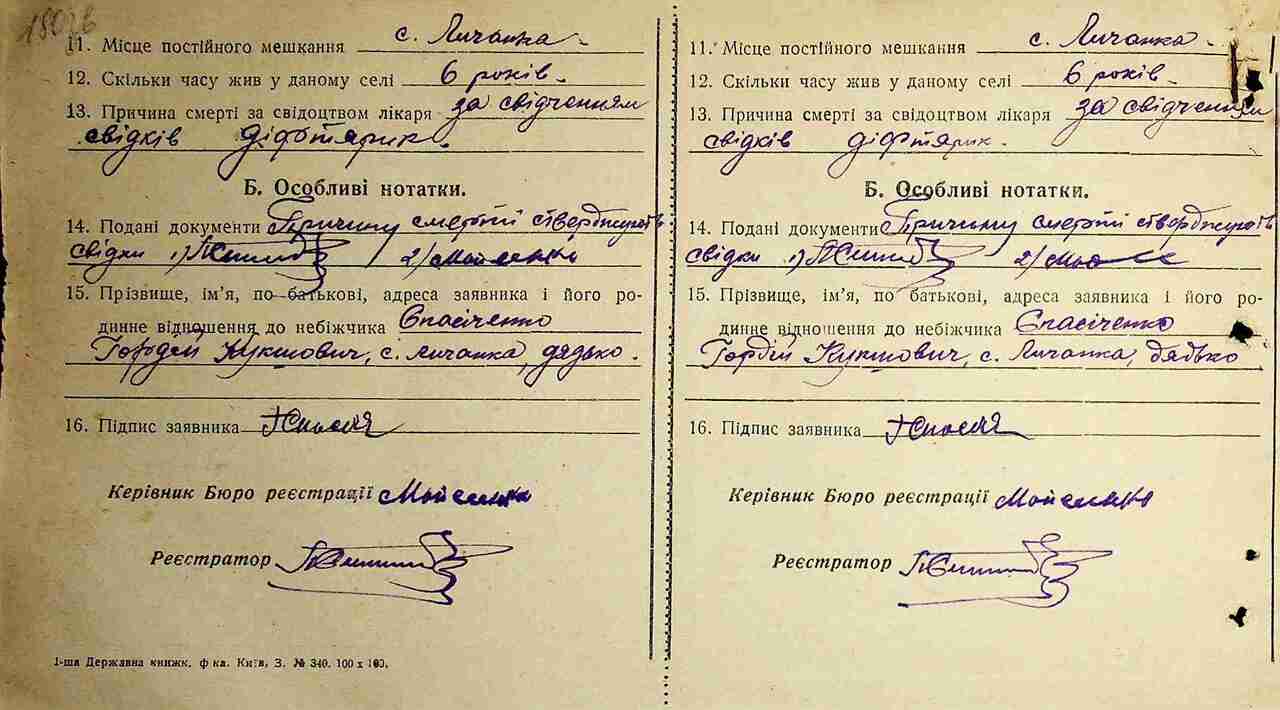 11. Місце постійного мешкання с. Личанка
12. Скільки часу жив у даному селі 6 років
13. Причина смерті за свідоцтвом лікаря за свідченням
свідків діфтярик.
Б. Особливі нотатки.
14. Подані документи Причину смерті стверджують
свідки 1) 2) Мойсеенко
15. Прізвище, ім'я, по батькові, адреса заявника і його ро-
динне відношення до небіжчика Єпасіченко
Гордій Кукшович, с. Личанка, дядько.
16. Підпис заявника
Керівник Бюро реєстрації
Реєстратор
1-ша Державна книжк. ф-ка. Київ, З. № 340. 100 x 100.
11. Місце постійного мешкання с. Личанка
12. Скільки часу жив у даному селі 6 років
13. Причина смерті за свідоцтвом лікаря за свідченням
свідків діфтярик.
Б. Особливі нотатки.
14. Подані документи Причину смерті стверджують
свідки 1) 2)
15. Прізвище, ім'я, по батькові, адреса заявника і його ро-
динне відношення до небіжчика Єпасіченко
Гордій Кукшович, с. Личанка, дядько
16. Підпис заявника
Керівник Бюро реєстрації
Реєстратор